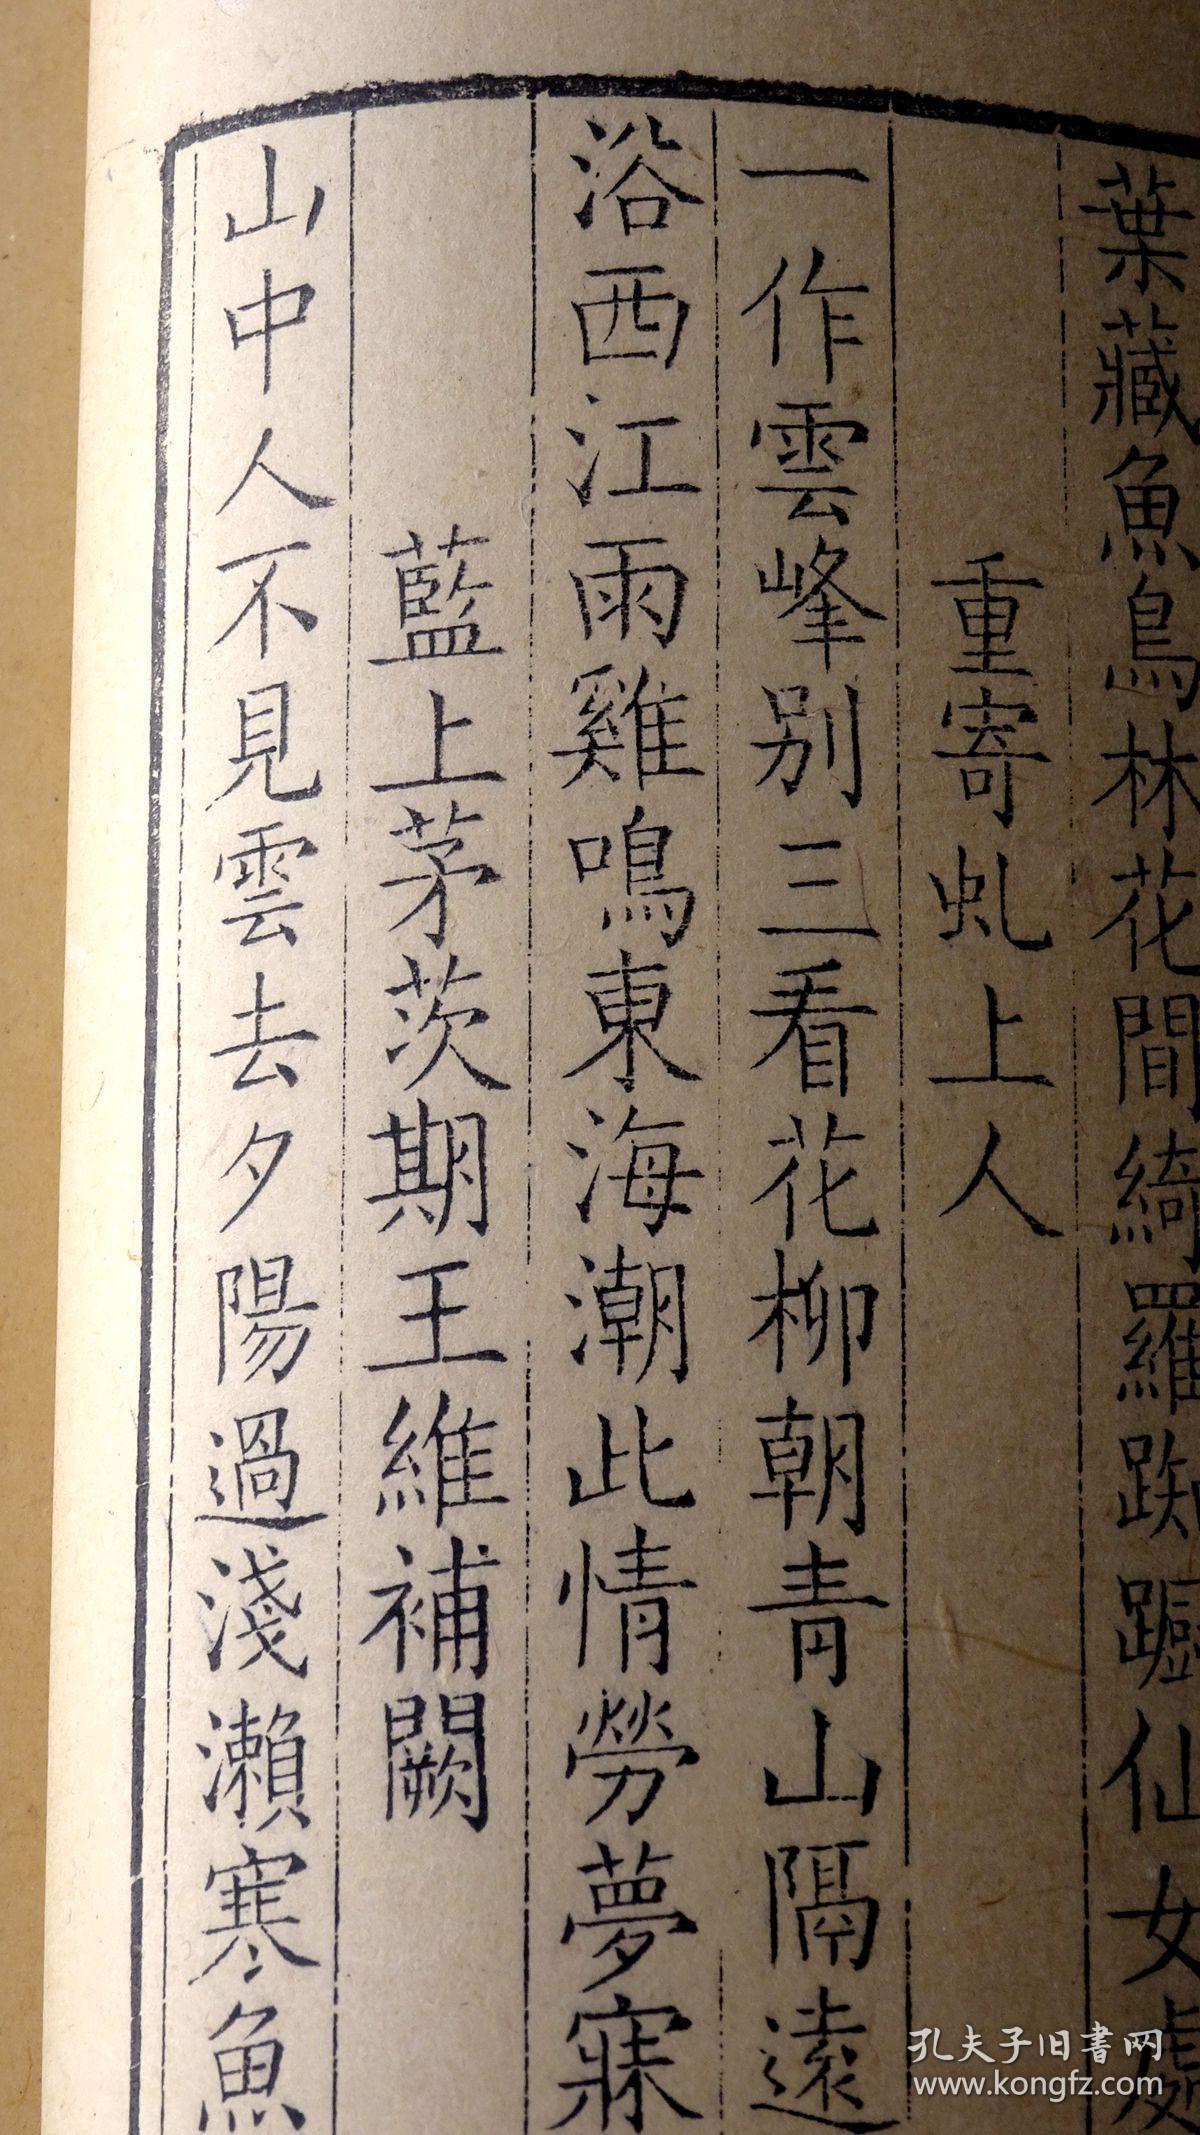 葉藏魚鳥林花間綺羅踟躕仙女處
重寄虬上人
一作雲峰別三看花柳朝青山隔遠
浴西江雨雞鳴東海潮此情勞夢寐
藍上茅茨期王維補闕
山中人不見雲去夕陽過淺瀨寒魚
孔夫子旧書网
www.kongfz.com